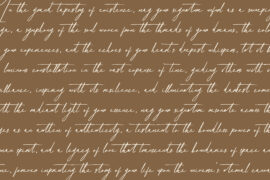 In the grand tapestry of existence, may your signature unfold as a symphon
ge, a symphony of the soul woven from the threads of your dreams, the colo
your experiences, and the echoes of your heart's deepest whispers. Let it b
luminous constellation in the vast expanse of time, guiding others with
brilliance, inspiring with its resilience, and illuminating the darkest corners
with the radiant light of your essence, may your signature resonate across th
ges as an anthem of authenticity, a testament to the boundless power of th
uman spirit, and a legacy of love that transcends the boundaries of space an
ime, forever imprinting the story of your life upon the universe's eternal canvas